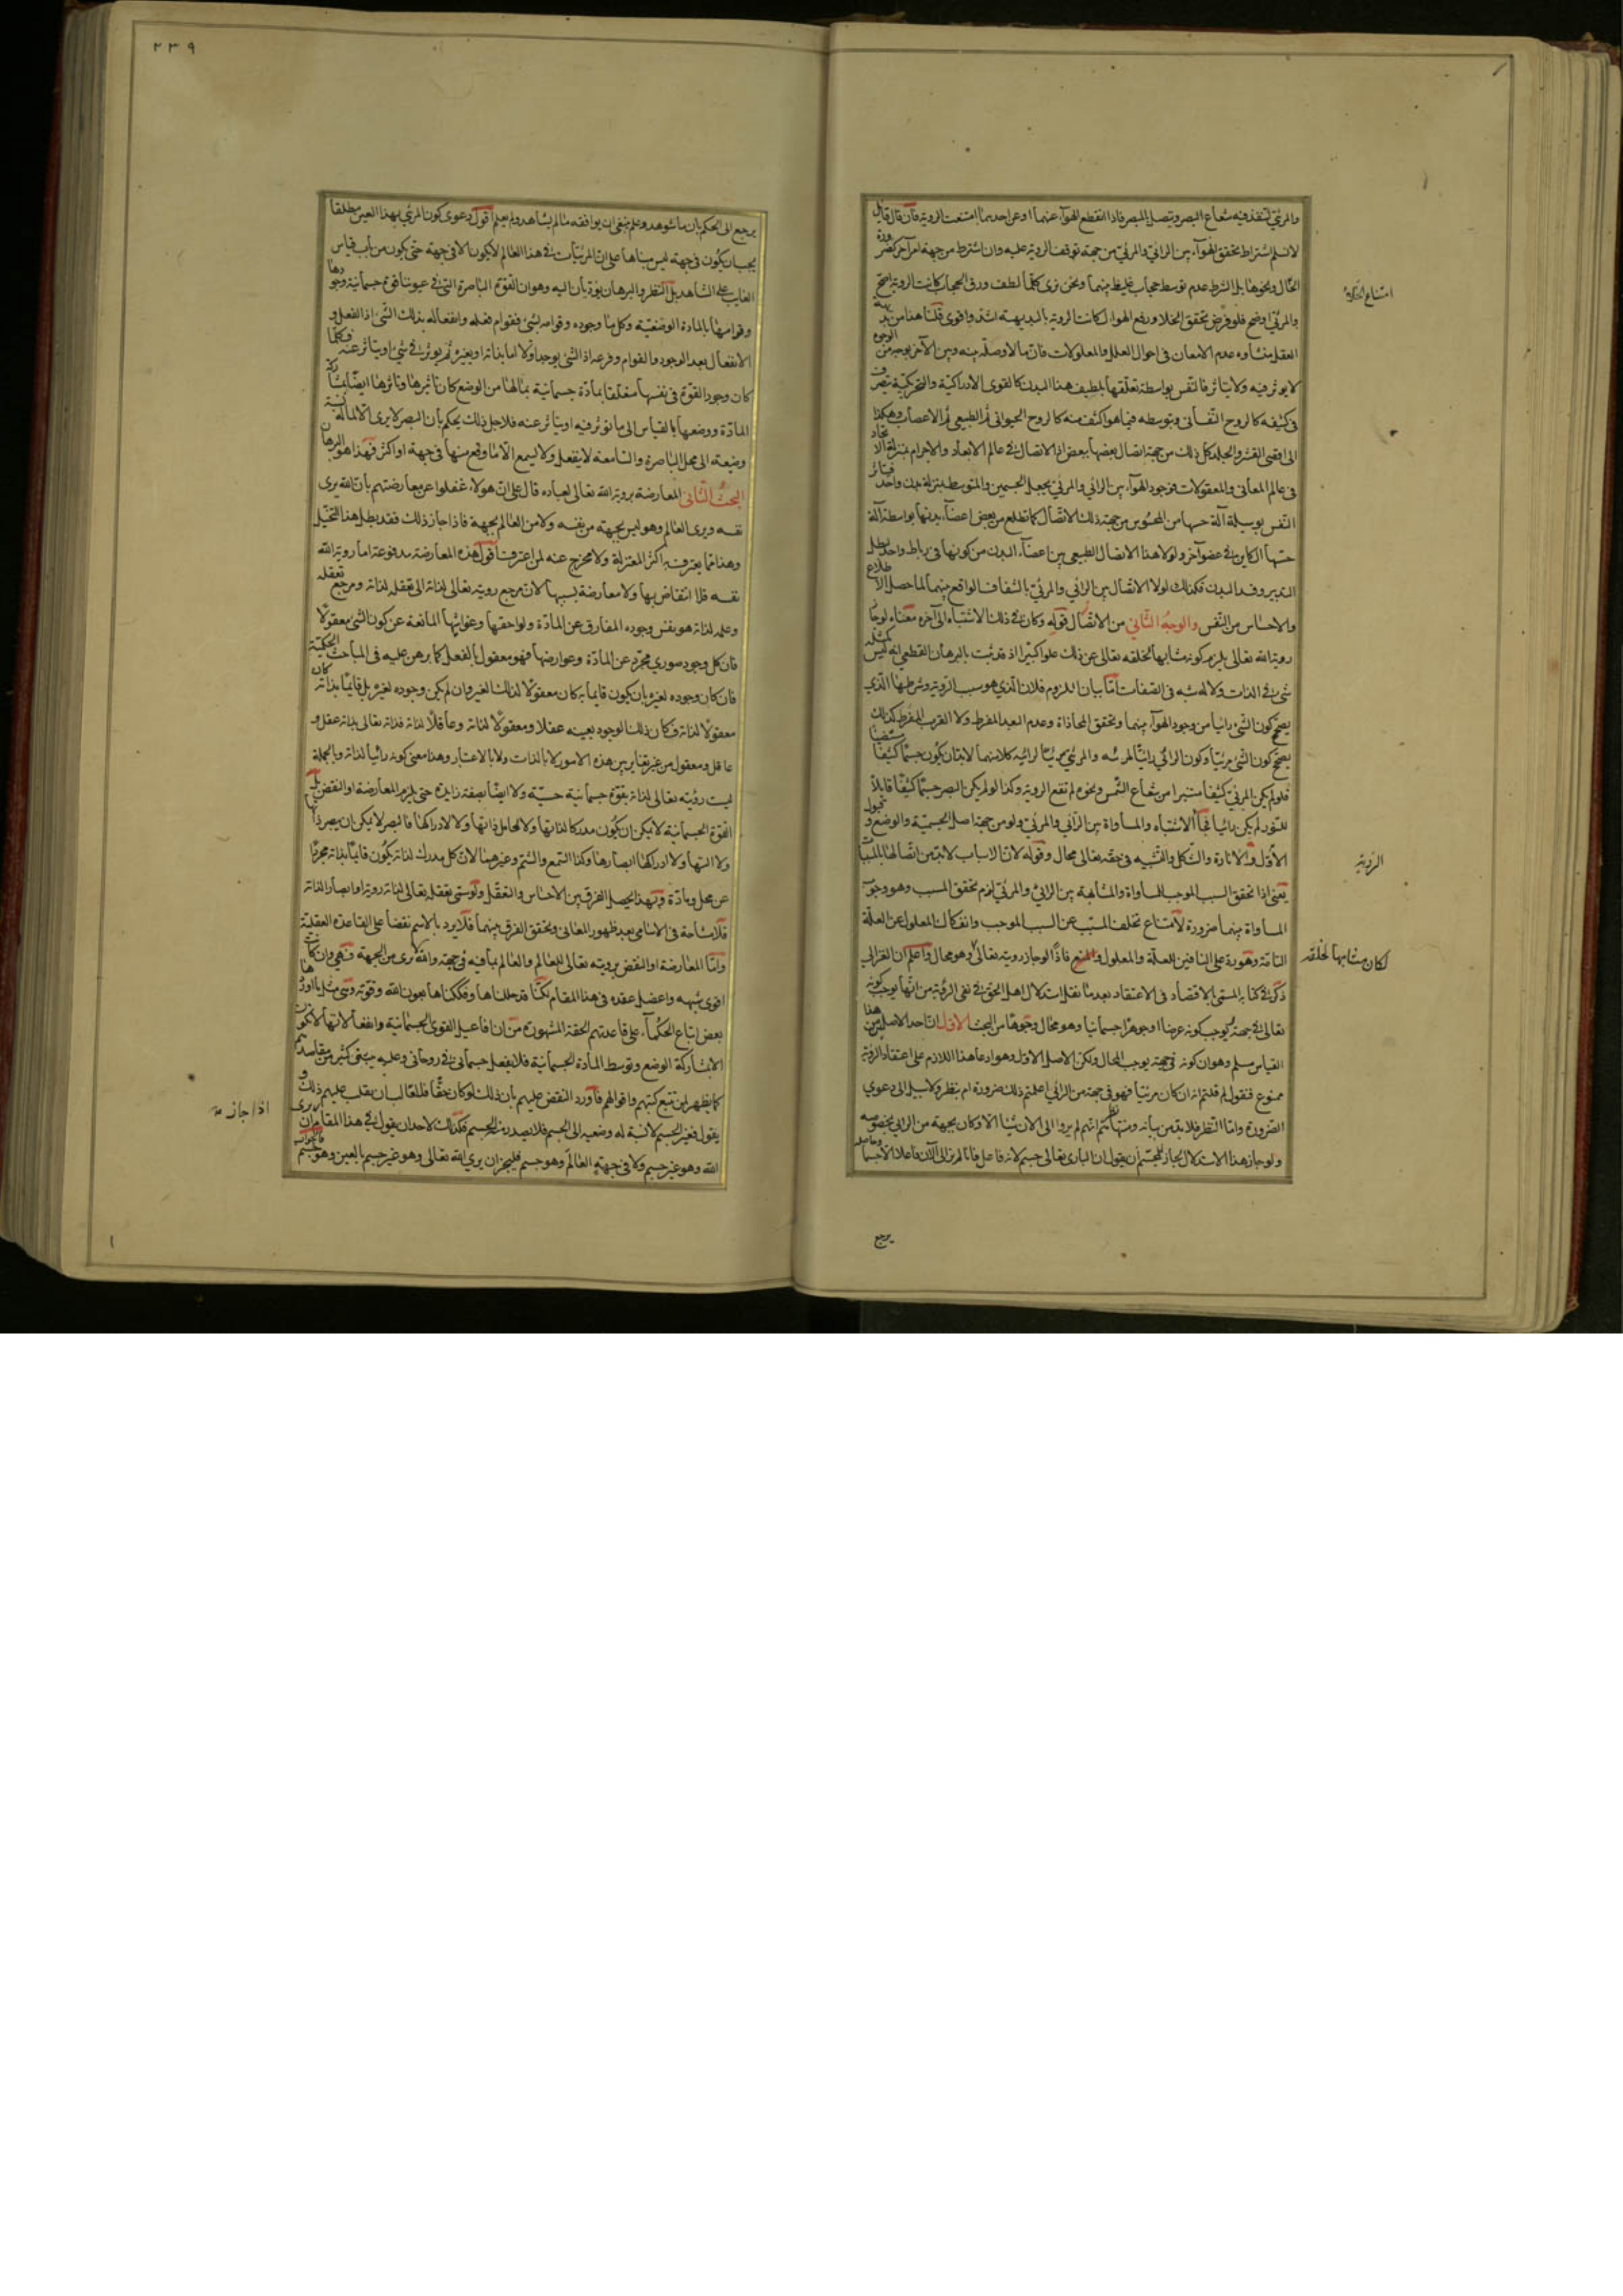 والمرئي لتنفذ فيه شعاع البصر ويتصل بالمبصر فاذا انقطع الهواء عنهما او عن احدهما امتنعت الروية فان قال قايل
لا نسلم اشتراط تحقق الهواء بين الرائي والمرئي من جهة توقف الروية عليه وان اشترط من جهة امر آخر كضرورة
امتناع الخلاء
الخلل ونحوها بل الشرط عدم توسط حجاب غليظ بينهما ونحن نرى كلما لطف ورق الحجاب كانت الروية اصح
والمرئي اوضح فلو فرض تحقق الخلا ورفع الهوا لكانت الروية بالبديهة اشد واقوى قلنا هذا من بديهة
العقل منشاوه عدم الامعان في احوال العلل والمعلولات فان ما لا وصلة بينه وبين الآخر بوجه من الوجوه
لا يوثر فيه ولا يتاثر فالنفس بواسطة تعلقها بلطيف هذا البدن كالقوى الادراكية والتحريكية يتصرف
في كثيفه كالروح النفساني وبتوسطه فيما هو اكثف منه كالروح الحيواني ثم الطبيعي ثم الاعصاب وهكذا
الى اقصى القشر والجلد كل ذلك من جهة اتصال بعضها ببعض اذ الاتصال في عالم الابعاد والاجرام بمنزلة الاتحاد
في عالم المعاني والمعقولات فوجود الهواء بين الرائي والمرئي يجعل الجسمين والمتوسط بمنزلة بدن واحد فيتاثر
النفس بوسيلة آلة حسها من المحسوس من جهة ذلك الاتصال كما تطلع من بعض اعضاء بدنها بواسطة آلة
حسها الكاين في عضو آخر ولولا هذا الاتصال الطبيعي بين اعضاء البدن من كونها في رباط واحد بطل
التدبير وفسد البدن فكذلك لولا الاتصال بين الرائي والمرئي بالشفاف الواقع بينهما لما حصل الاطلاع
والاحساس من النفس والوجه الثاني من الاتصال قوله وكان في ذلك الاشتباه الى آخره معناه لو جاز
روية الله تعالى يلزم كونه مشابها لخلقه تعالى عن ذلك علوا كبيرا اذ قد ثبت بالبرهان القطعي انه ليس كمثله
شيء في الذات ولا له شبه في الصفات اما بيان اللزوم فلان الذي هو سبب الروية وشرطها الذي
يصحح كون الشيء رائيا من وجود الهواء بينهما وتحقق المحاذاة وعدم البعد المفرط ولا القرب المفرط كذلك
يصحح كون الشيء مرئيا وكون الرائي رائيا لمرئيه والمرئي مرئيا لرائيه كلاهما لابد ان يكون جسما كثيفا
فلو لم يكن المرئي كثيفا مستنيرا من شعاع الشمس ونحوه لم تقع الروية وكذا لو لم يكن البصر جسما كثيفا قابلا
للنور لم يكن رائيا فجاء الاشتباه والمساواة بين الرائي والمرئي ولو من جهة اصل الجسمية والوضع وقبول
الأفول والانارة والشكل والتشبيه في حقه تعالى محال وقوله لان الاسباب لابد من اتصالها بالمسببات
الروية
يعني اذا تحقق السبب الموجب للمساواة والمشابهة بين الرائي والمرئي لزم تحقق المسبب وهو وجوب
المساواة بينهما ضرورة لامتناع تخلف المسبب عن السبب الموجب وانفكاك المعلول عن العلة
التامة فاذا لو جاز رويته تعالى وهو محال واعلم ان الغزالي
لكان مشابها لخلقه
ذكر في كتابه المسمى بالاقتصاد في الاعتقاد بعد ما نقل استدلال اهل الحق في نفي الرؤية من انها يوجب كونه
تعالى في جهة يوجب كونه عرضا او جوهرا جسمانيا وهو محال وجوها من البحث الاول ان احد الاصلين من هذا
القياس مسلم وهو ان كونه في جهة يوجب المحال ولكن الاصل الاول وهو ادعا هذا اللازم على اعتقاد الروية
ممنوع فنقول لم قلتم انه ان كان مرئيا فهو في جهة من الرائي اعلمتم ذلك ضرورة ام بنظر ولا سبيل الى دعوى
الضرورة واما النظر فلابد من بيانه ومنتهاكم انهم لم يروا الى الان شيئا الا وكان بجهة من الرائي مخصوصة
ولو جاز هذا الاستدلال لجاز للمجسم ان يقول ان الباري تعالى جسم لانه فاعل فانا لم نر الى الان فاعلا الا جسما وحاصله
يرجع
٢٣٩
يرجع الى الحكم بان ما شوهد وعلم ينبغي ان يوافقه ما لم يشاهد ولم يعلم اقول دعوى كون المرئي بهذا العين مطلقا
يجب ان يكون في جهة ليس مبناها على ان المرئيات في هذا العالم لا يكون الا في جهة حتى يكون من باب قياس
الغايب على الشاهد بل النظر والبرهان يؤديان اليه وهو ان القوة الباصرة التي في عيوننا قوة جسمانية وجودها
وقوامها بالمادة الوضعية وكل ما وجوده وقوامه بشيء فقوام فعله وانفعاله بذلك الشيء اذ الفعل و
الانفعال بعد الوجود والقوام وفرعه اذ الشيء يوجد اولا اما بذاته او بغيره ثم يوثر في شيء او يتاثر عنه فكلما
كان وجود القوة في نفسها متعلقا بمادة جسمانية بما لها من الوضع كان تاثيرها وتاثرها ايضا بمشاركة
المادة ووضعها بالقياس الى ما توثر فيه او يتاثر عنه فلاجل ذلك يحكم بان البصر لا يرى الا لما له نسبة
وضعية الى محل الباصرة والسامعة لا ينفعل ولا يسمع الا ما وقع منها في جهة او اكثر فهذا هو البرهان
البحث الثاني المعارضة بروية الله تعالى لعباده قال على ان هولاء غفلوا عن معارضتهم بان الله يرى
نفسه ويرى العالم وهو ليس بجهة من نفسه ولا من العالم بجهة فاذا جاز ذلك فقد بطل هذا التخيل
وهذا مما يعترف به اكثر المعتزلة ولا مخرج عنه لمن اعترف اقول هذه المعارضة مدفوعة اما روية الله
نفسه فلا انتقاض بها ولا معارضة بسببها لان مرجع رويته تعالى لذاته الى تعقله لذاته ومرجع تعقله
وعلمه لذاته هو نفس وجوده المفارق عن المادة ولواحقها وغواشيها المانعة عن كون الشيء معقولا
فان كل وجود صوري مجرد عن المادة وعوارضها فهو معقول بالفعل كما برهن عليه في المباحث الحكمية
فان كان وجوده لغيره بان يكون قايما به كان معقولا لذلك الغير وان لم يكن وجوده لغيره بل قايما بذاته كان
معقولا لذاته فكان ذلك الوجود بعينه عقلا ومعقولا لذاته وعاقلا لذاته فذاته تعالى بذاته عقل و
عاقل ومعقول من غير تغاير بين هذه الامور لا بالذات ولا بالاعتبار وهذا معنى كونه رائيا لذاته وبالجملة
ليست رؤيته تعالى لذاته بقوة جسمانية حسية ولا ايضا بصفة زايدة حتى يلزم المعارضة او النقض بل
القوة الجسمانية لا يمكن ان يكون مدركا لذاتها ولا لحامل ذاتها ولا لادراكها فالبصر لا يمكن ان يبصر ذاتها
ولا آلتها ولا ادراكها ابصارها وكذا السمع والشم وغيرهما لان كل مدرك لذاته يكون قايما بذاته مجردا
عن محل ومادة وبهذا يحصل الفرق بين الاحساس والتعقل ولو سمي تعقله تعالى لذاته روية او ابصار الذاته
فلا مشاحة في الاسامي بعد ظهور المعاني وتحقق الفرق بينهما فلا يرد بالاسم نقضا على القاعدة العقلية
واما المعارضة او النقض برويته تعالى للعالم والعالم بما فيه في جهة والله يرى من الجهة فهي وان كانت
اقوى شبهة واعضل عقدة في هذا المقام لكنا قد حللناها وفككناها بعون الله وقوته وشي مثل ما اورد
بعض اتباع الحكماء على قاعدتهم الحقة المشهورة من ان افاعيل القوى الجسمانية وانفعالاتها لا تكون
الا بمشاركة الوضع وتوسط المادة الجسمانية فلا يفعل جسماني في روحاني وعليه يبتني كثير من مقاصدهم
كما يظهر لمن تتبع كتبهم واقوالهم فاورد النقض عليهم بان ذلك لو كان حقا فلقائل ان يقلب عليهم ذلك و
اذا جاز
يقول فغير الجسم لا نسبة له وضعية الى الجسم فلا يصدر منه الجسم فكذلك لاحد ان يقول في هذا المقام ان يرى
الله وهو غير جسم ولا في جهة العالم وهو جسم فليجز ان يرى الله تعالى وهو غير جسم بالعين وهو جسم فالجواب